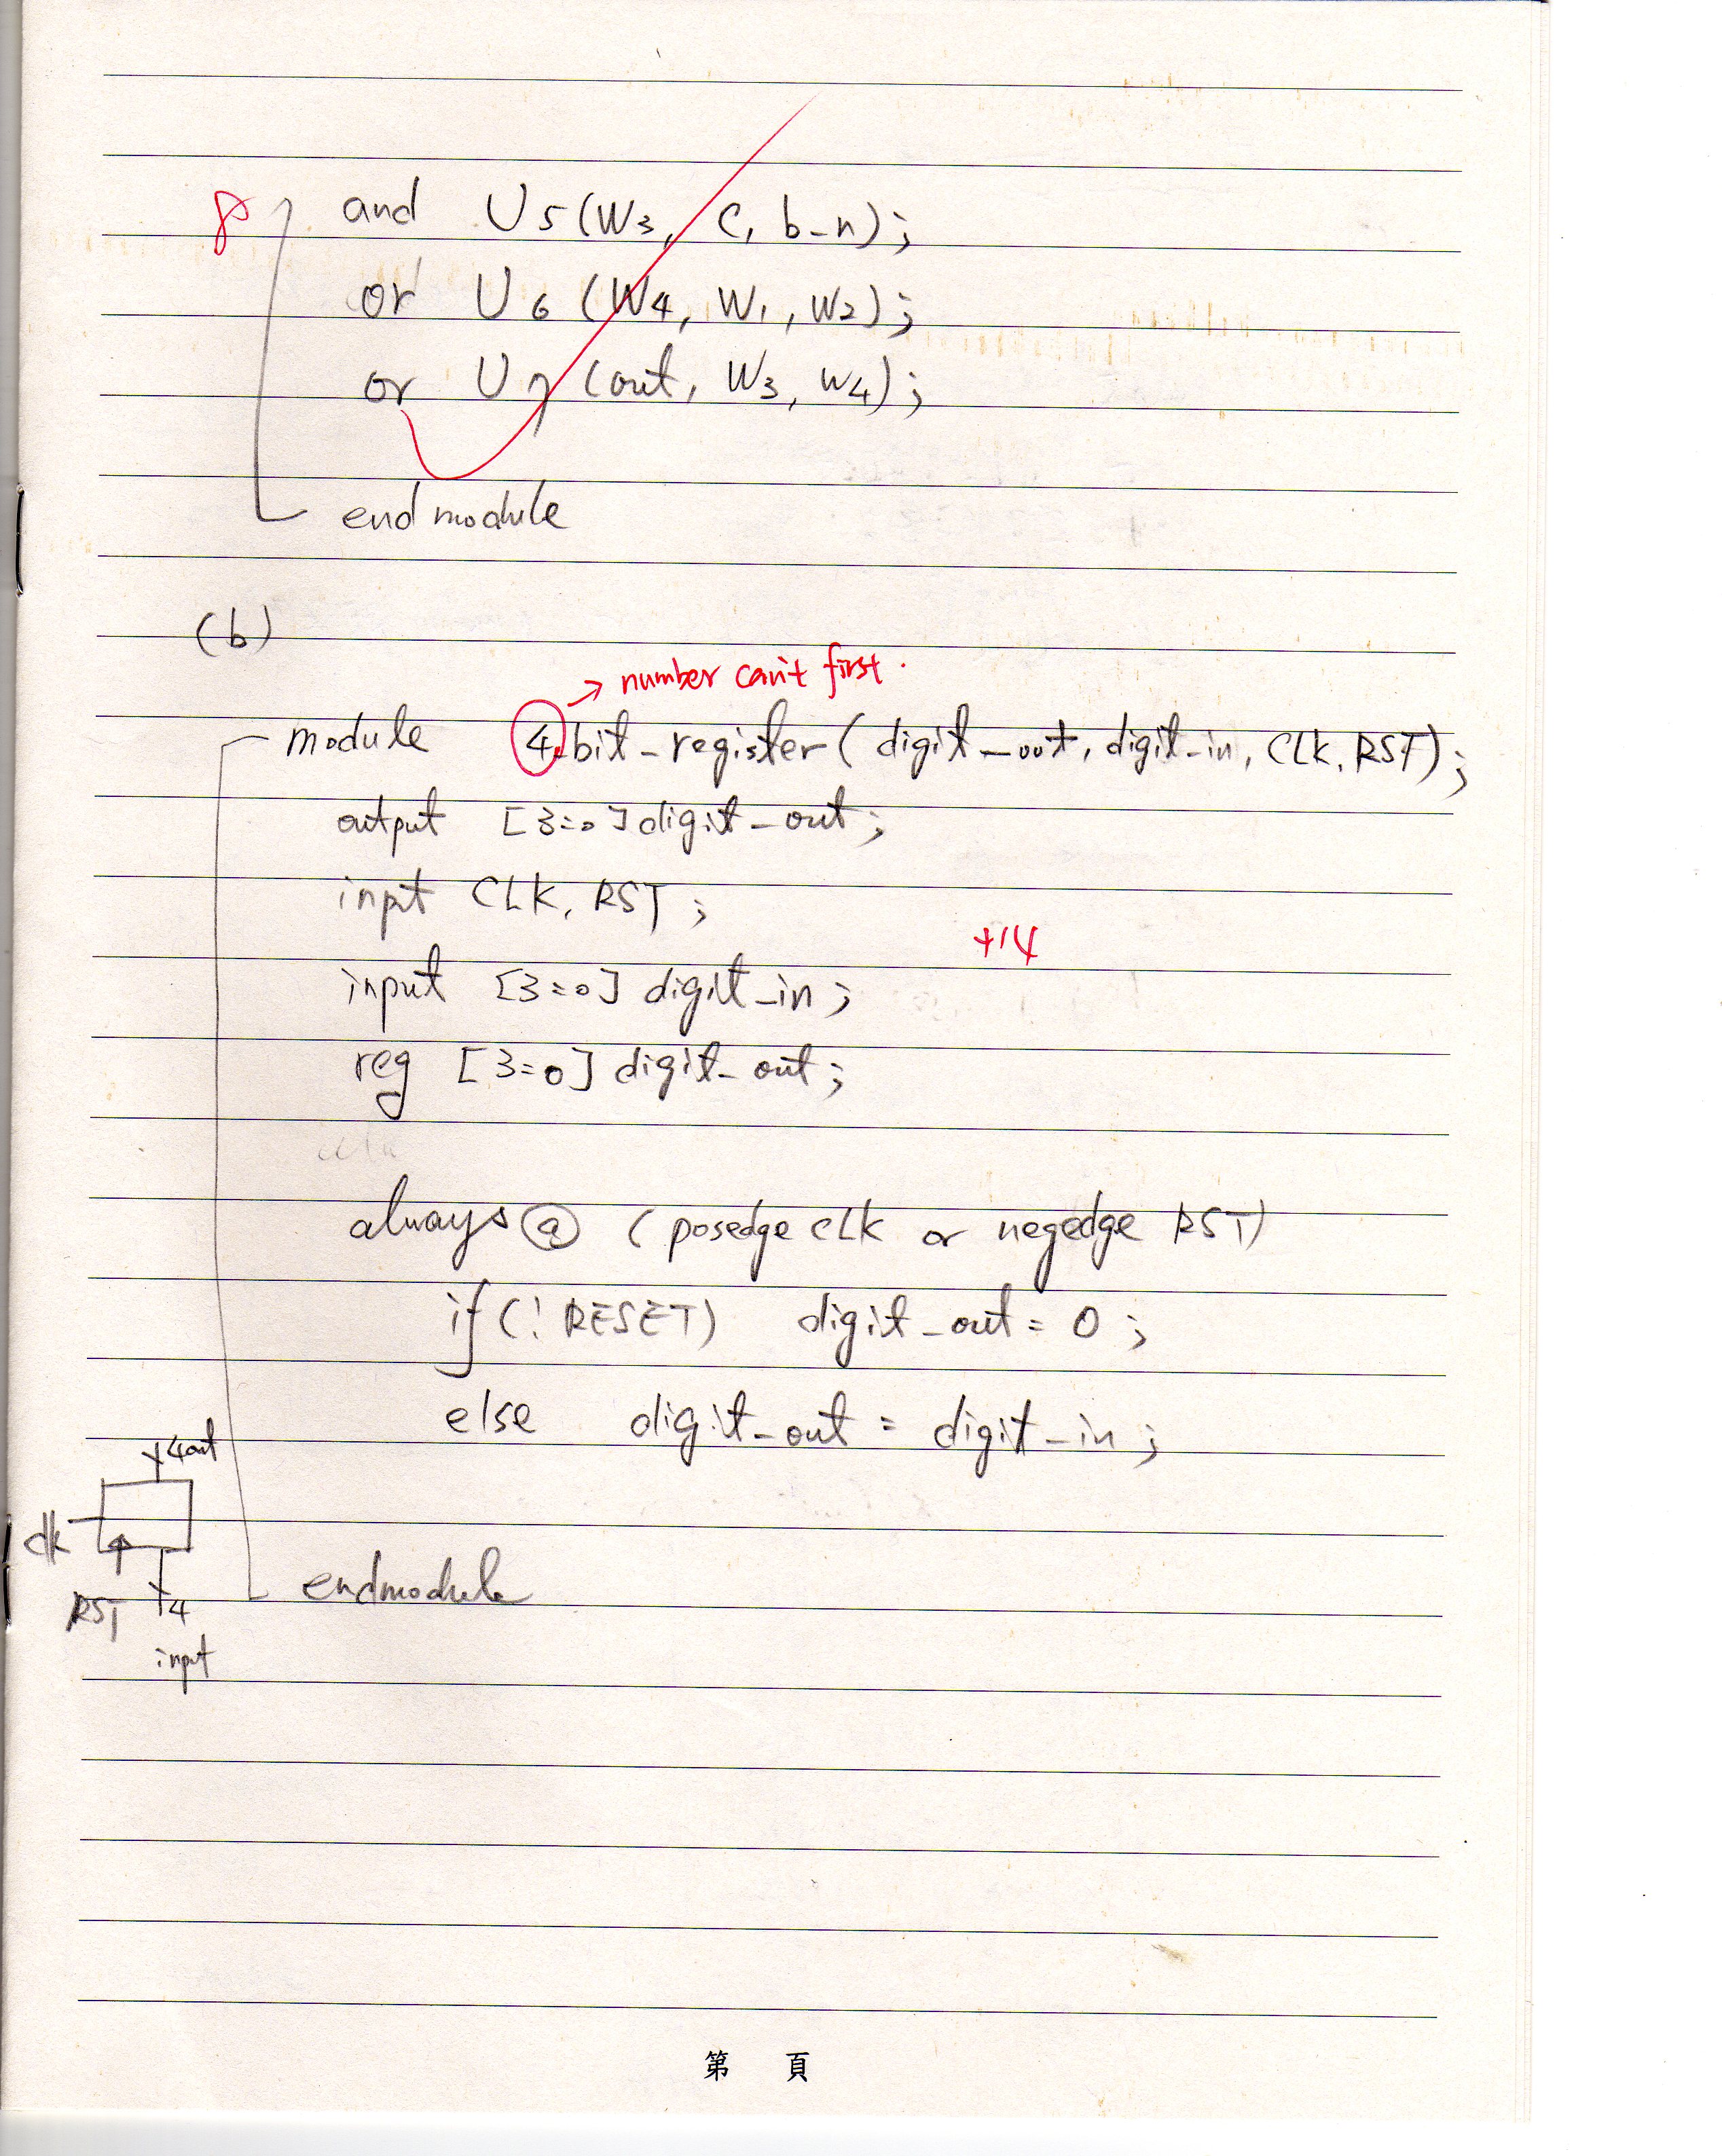 8 and U5(W3, C, b_n);
or U6 (W4, W1, W2);
or U7 (out, W3, W4);
endmodule
(b)
→ number can't first.
module 4_bit_register( digit_out, digit_in, CLK, RST);
output [3:0] digit_out;
input CLK, RST;
+14
input [3:0] digit_in;
reg [3:0] digit_out;
always @ (posedge CLK or negedge RST)
if (! RESET) digit_out = 0;
else digit_out = digit_in;
4out
clk
endmodule
RST 4
input
第 頁